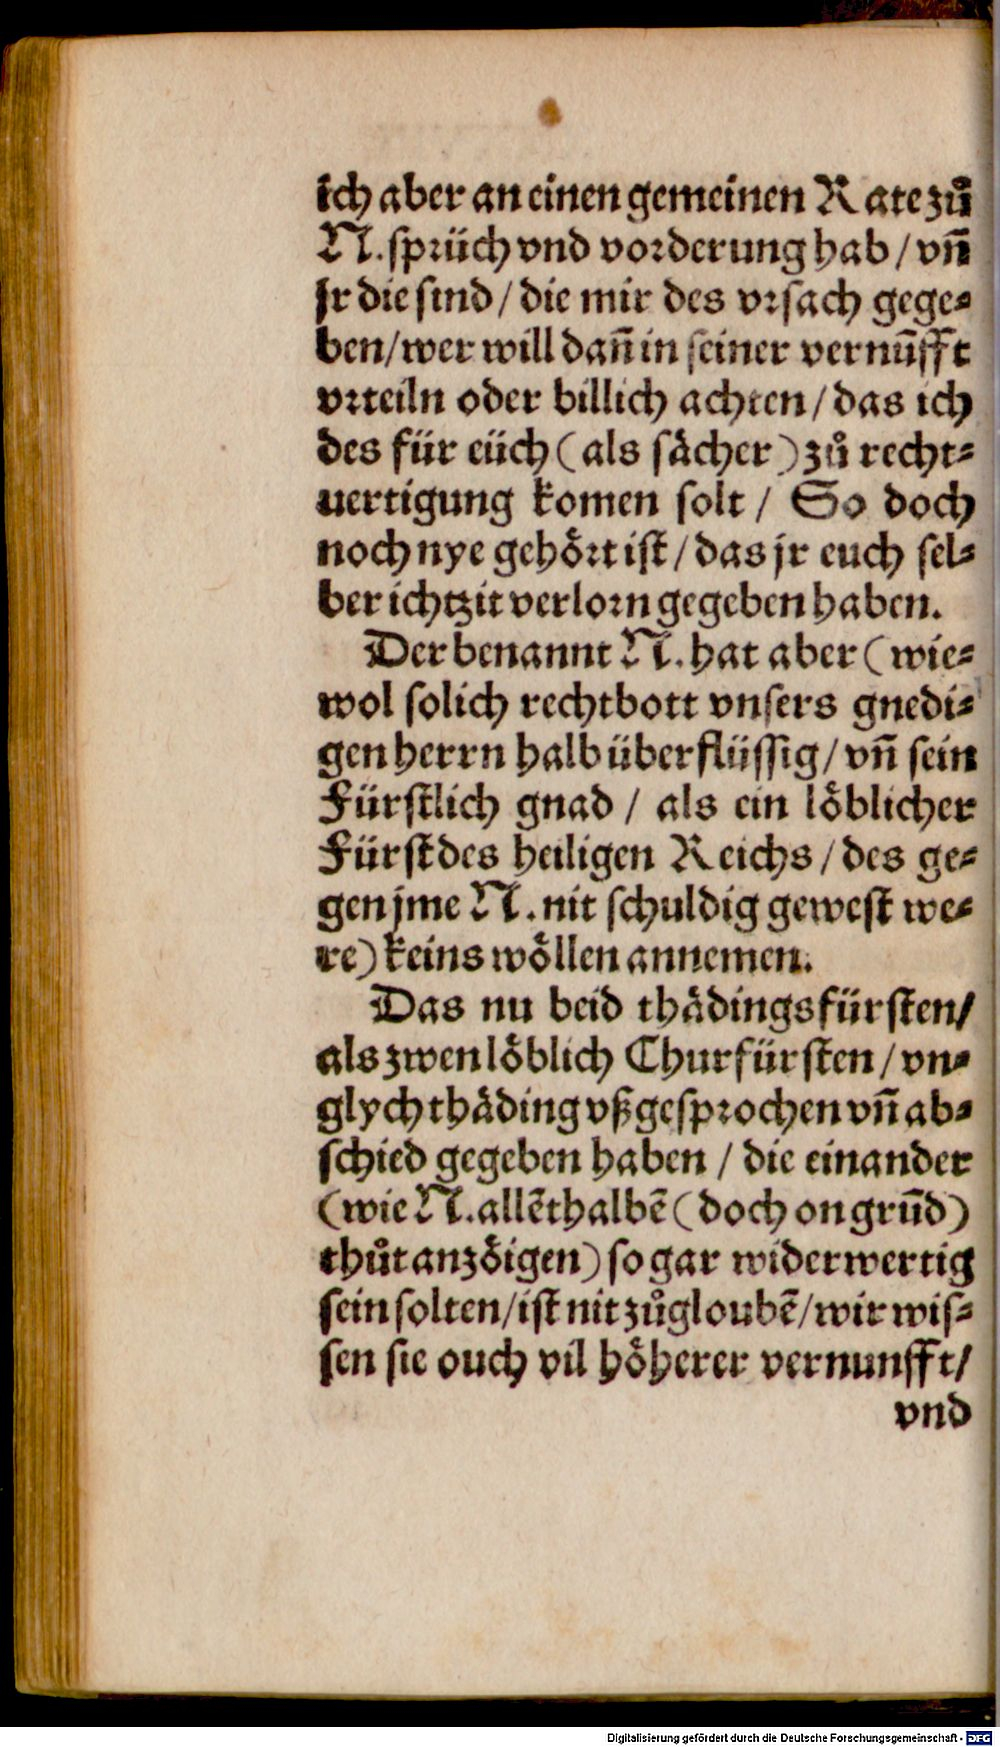 ich aber an einen gemeinen Rate zuͦ
N. sprüch vnd vorderung hab / vñ
jr die sind / die mir des vrsach gege⸗
ben / wer will dañ in seiner vernũfft
vrteiln oder billich achten / das ich
des für eüch (als saͤcher) zuͦ recht⸗
uertigung komen solt / So doch
noch nye gehoͤrt ist / das jr euch sel⸗
ber ichtzit verlorn gegeben haben.
Der benannt N. hat aber (wie⸗
wol solich rechtbott vnsers gnedi⸗
gen herrn halb überflüssig / vñ sein
Fürstlich gnad / als ein loͤblicher
Fürst des heiligen Reichs / des ge⸗
gen jme N. nit schuldig gewest we⸗
re) keins woͤllen annemen.
Das nu beid thaͤdingsfürsten /
als zwen loͤblich Churfürsten / vn⸗
glych thaͤding vßgesprochen vñ ab⸗
schied gegeben haben / die einander
(wie N. allẽthalbẽ (doch on grũd)
thuͦt anzoͤigen) so gar widerwertig
sein solten / ist nit zuͦgloubẽ / wir wis⸗
sen sie ouch vil hoͤherer vernunfft /
vnd
Digitalisierung gefördert durch die Deutsche Forschungsgemeinschaft - DFG